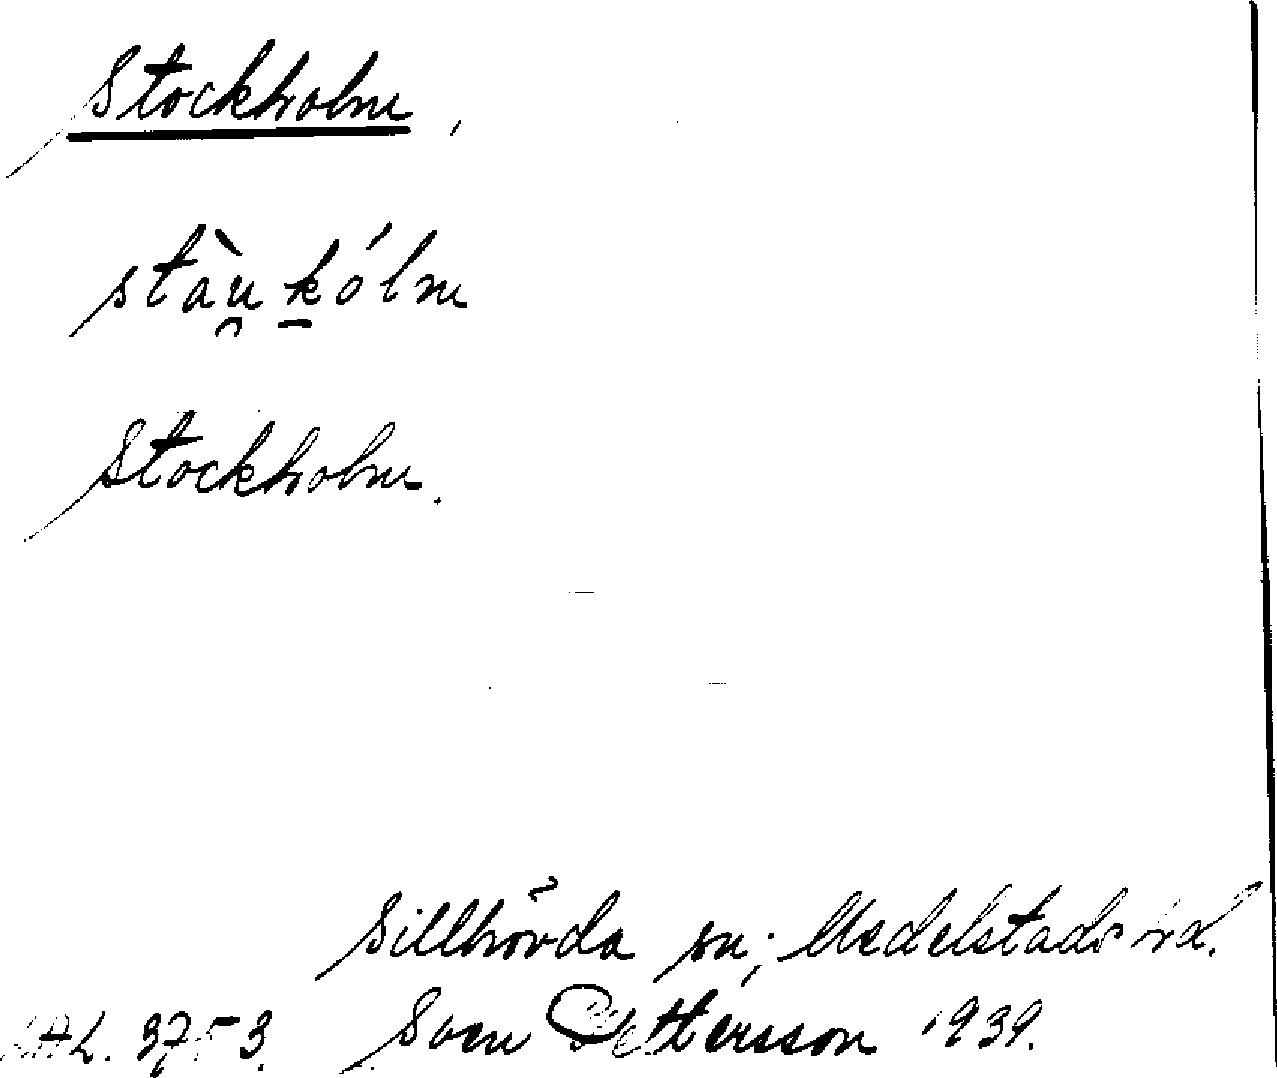 Stockholm,
stàu̯ḵólm
Stockholm.
Sillhövda sn; Medelstads hd.
LAL. 3753. Sven Pettersson 1939.